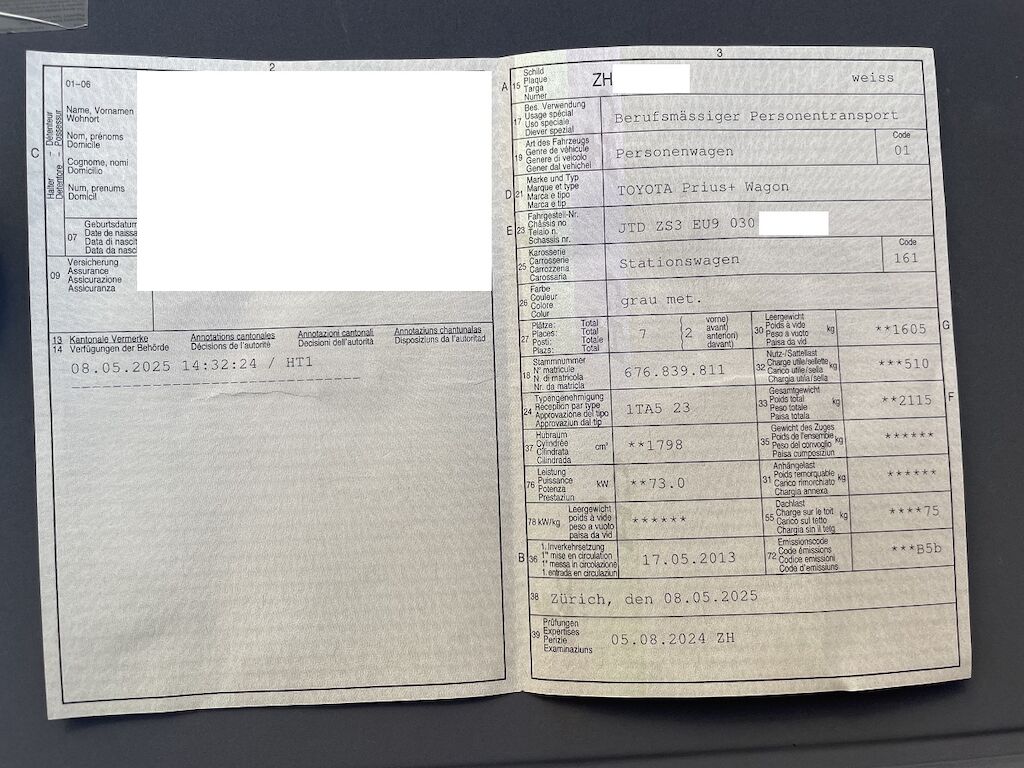 2
01-06
C
Halter - Détenteur
Detentore - Possessur
Name, Vornamen
Wohnort
Nom, prénoms
Domicile
Cognome, nomi
Domicilio
Num, prenums
Domicil
07
Geburtsdatum
Date de naissa
Data di nascit
Data da nasc
09
Versicherung
Assurance
Assicurazione
Assicuranza
13 Kantonale Vermerke Annotations cantonales Annotazioni cantonali Annotaziuns chantunalas
14 Verfügungen der Behörde Décisions de l'autorité Decisioni dell'autorità Disposiziuns da l'autoritad
08.05.2025 14:32:24 / HT1
3
A 15
Schild
Plaque
Targa
Numer
ZH
weiss
17
Bes. Verwendung
Usage spécial
Uso speciale
Diever spezial
Berufsmässiger Personentransport
19
Art des Fahrzeugs
Genre de véhicule
Genere di veicolo
Gener dal vehichel
Personenwagen
Code
01
D 21
Marke und Typ
Marque et type
Marca e tipo
Marca e tip
TOYOTA Prius+ Wagon
E 23
Fahrgestell-Nr.
Châssis no
Telaio n.
Schassis nr.
JTD ZS3 EU9 030
25
Karosserie
Carrosserie
Carrozzeria
Carossaria
Stationswagen
Code
161
26
Farbe
Couleur
Colore
Colur
grau met.
27
Plätze: Total
Places: Total
Posti: Totale
Plazs: Total
7 {2
vorne)
avant)
anteriori)
davant)
30
Leergewicht
Poids à vide
Peso a vuoto
Paisa da vid
kg
**1605
G
18
Stammnummer
N° matricule
N. di matricola
Nr. da matricla
676.839.811
32
Nutz-/Sattellast
Charge utile/sellette
Carico utile/sella
Chargia utila/sella
kg
***510
24
Typengenehmigung
Réception par type
Approvazione del tipo
Approvaziun dal tip
1TA5 23
33
Gesamtgewicht
Poids total
Peso totale
Paisa totala
kg
**2115
F
37
Hubraum
Cylindrée
Cilindrata
Cilindrada
cm³
**1798
35
Gewicht des Zuges
Poids de l'ensemble
Peso del convoglio
Paisa cumposiziun
kg
******
76
Leistung
Puissance
Potenza
Prestaziun
kW
**73.0
31
Anhängelast
Poids remorquable
Carico rimorchiato
Chargia annexa
kg
******
78 kW/kg
Leergewicht
poids à vide
peso a vuoto
paisa da vid
******
55
Dachlast
Charge sur le toit
Carico sul tetto
Chargia sin il tetg
kg
****75
B 36
1. Inverkehrsetzung
1re mise en circulation
1a messa in circolazione
1. entrada en circulaziun
17.05.2013
72
Emissionscode
Code émissions
Codice emissioni
Code d'emissiuns
***B5b
38
Zürich, den 08.05.2025
39
Prüfungen
Expertises
Perizie
Examinaziuns
05.08.2024 ZH